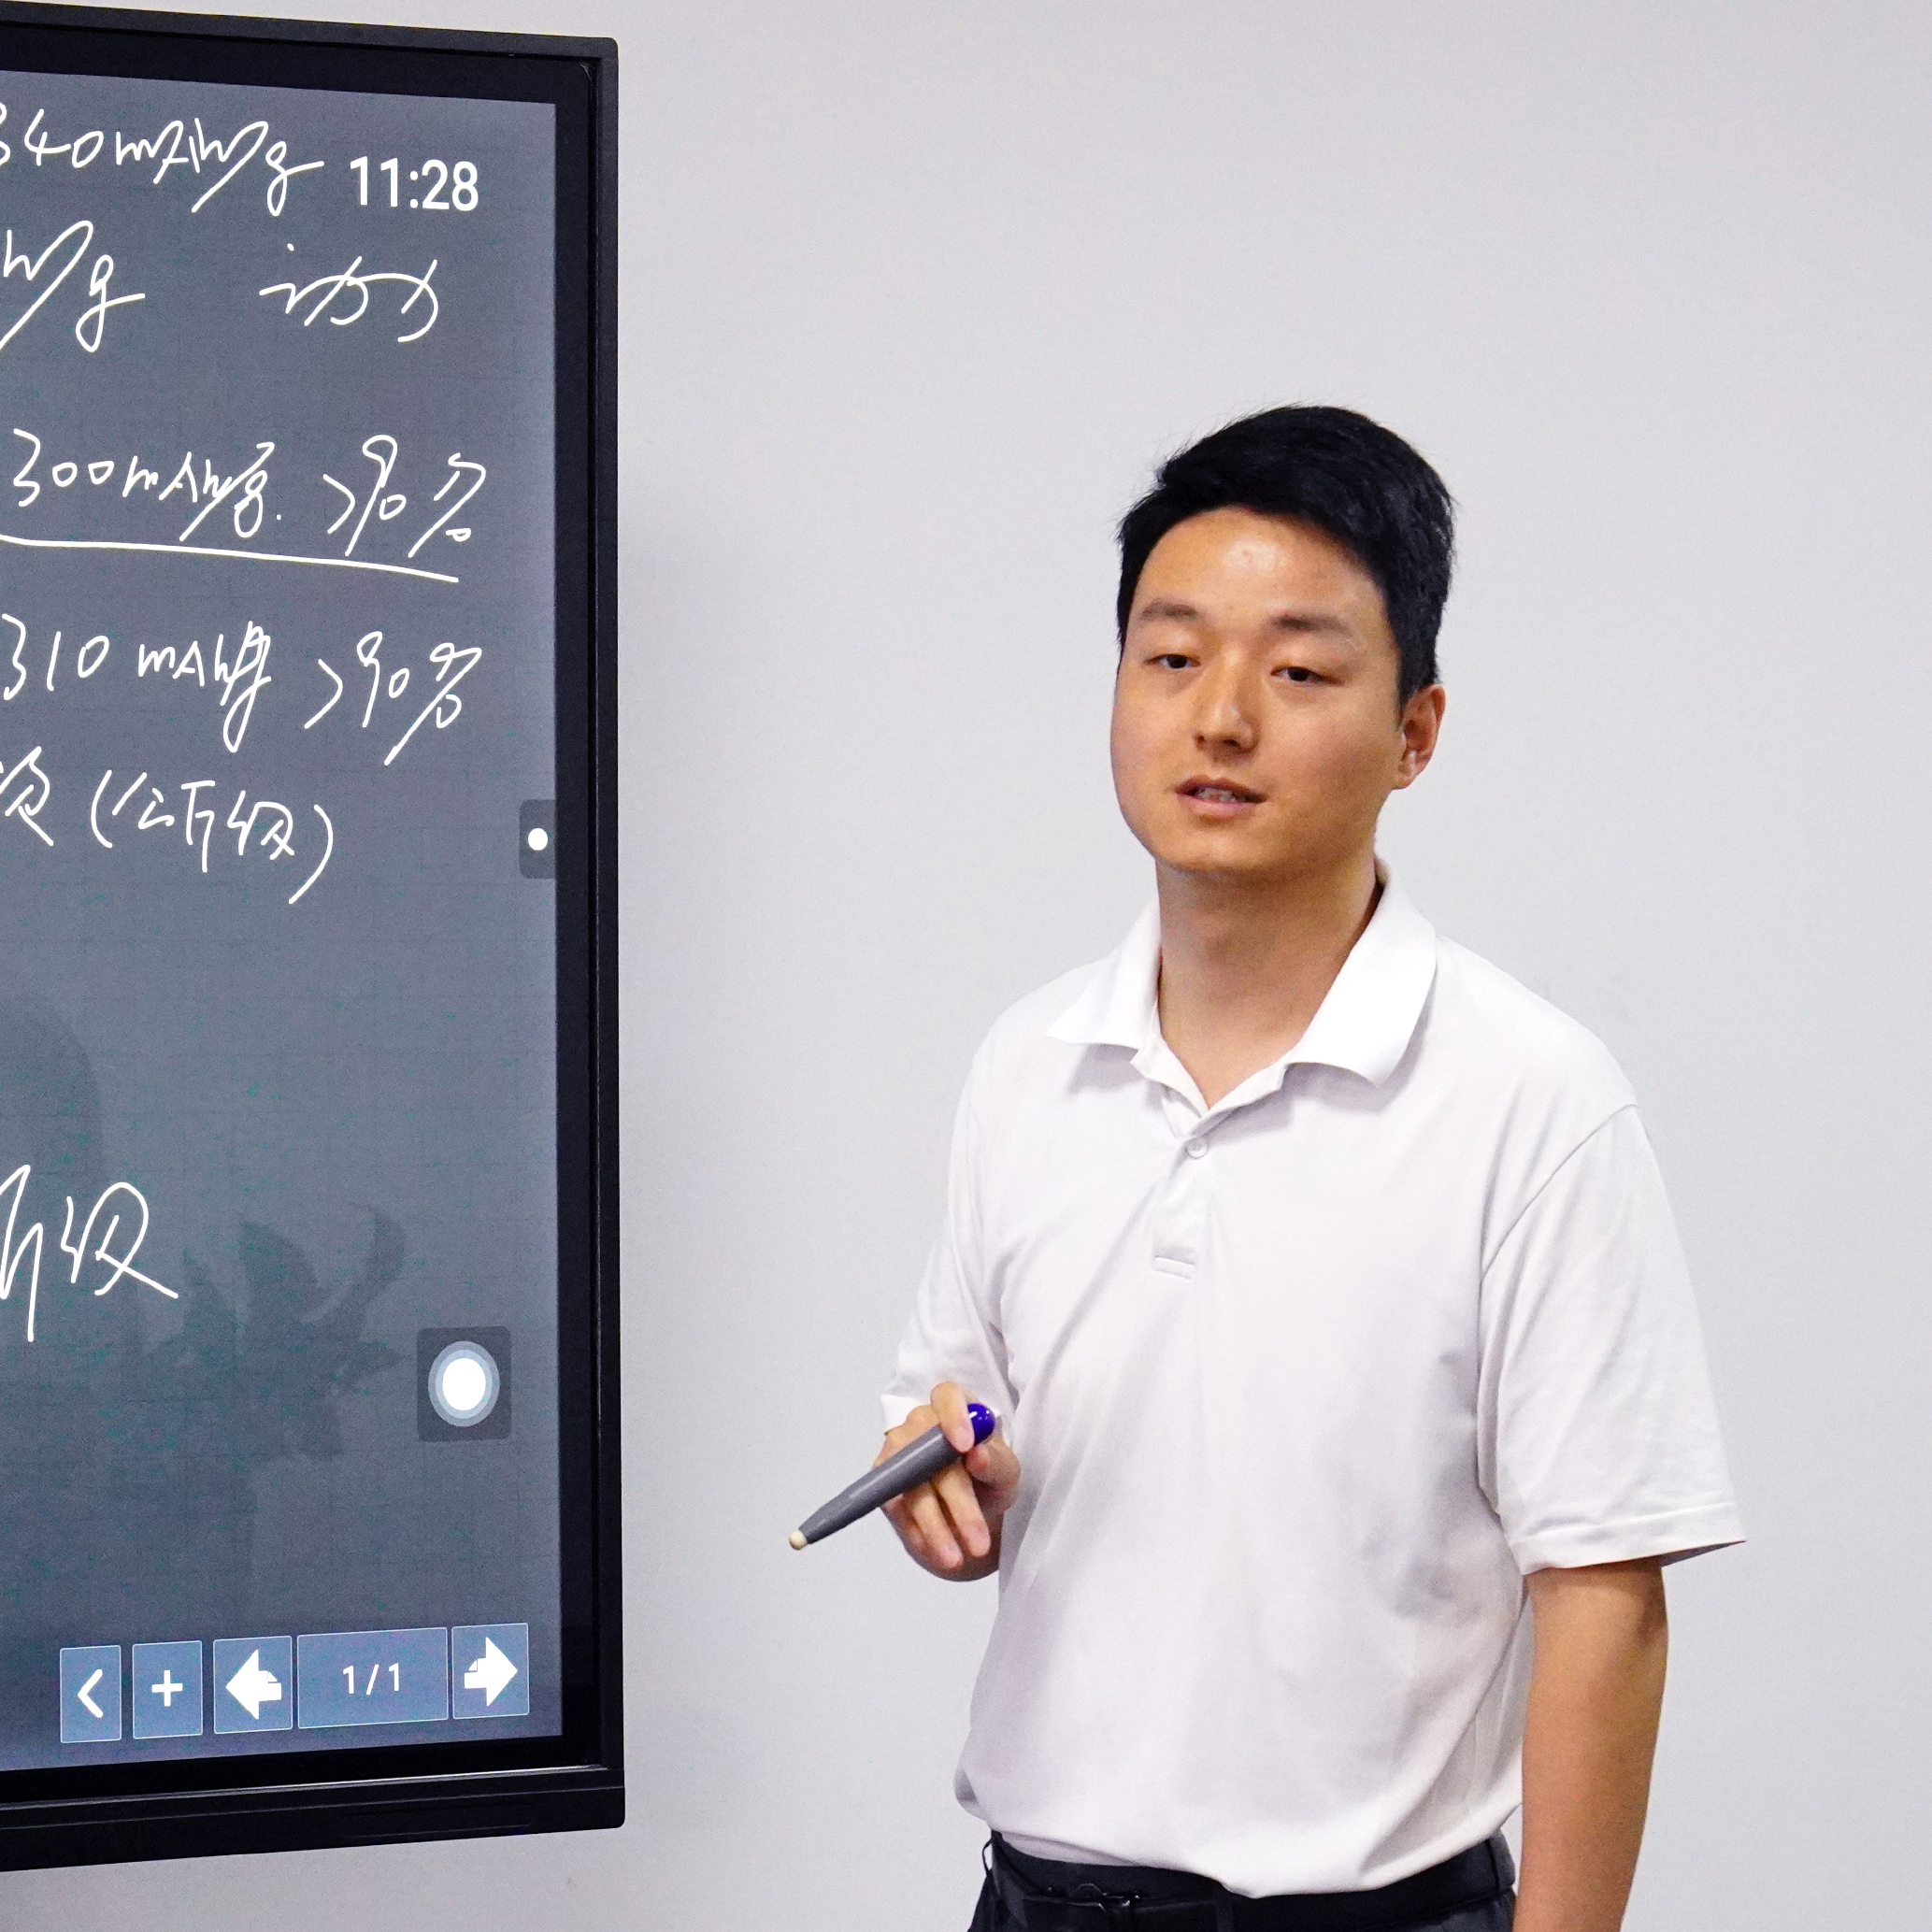 340mAh/g 11:28
Ah/g
300mAh/g. >90%
310 mAh/g >90%
验 (公斤级)
斤级
1/1